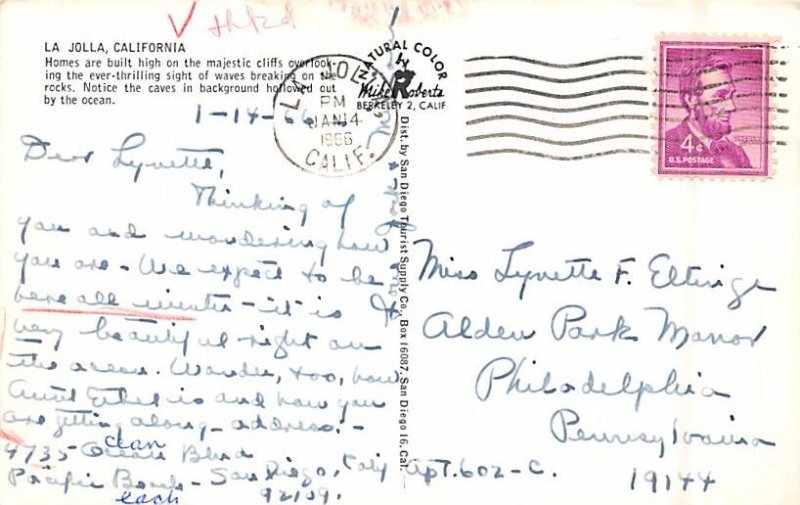 thkd
LA JOLLA, CALIFORNIA
Homes are built high on the majestic cliffs overlook-
ing the ever-thrilling sight of waves breaking on the
rocks. Notice the caves in background hollowed out
by the ocean.
LA JOLLA
PM
JAN 14
1966
CALIF.
NATURAL COLOR
by
Mike Roberts
BERKELEY 2, CALIF
4¢
LINCOLN
U.S. POSTAGE
1-14-66
Dear Lynette,
Thinking of
you and wondering how
you are - We expect to be
here all winter - it is
very beautiful right on
the ocean. Wonder, too, how
Aunt Ethel is and how you
are getting along - address: -
4735 - Ocean Blvd
cean
Pacific Beach - San Diego, Calif
each
92109.
Dist. by San Diego Tourist Supply Co., Box 16087, San Diego 16, Cal.
Miss Lynette F. Eltinge
Alden Park Manor
Philadelphia
Pennsylvania
Apt. 602-C.
19144